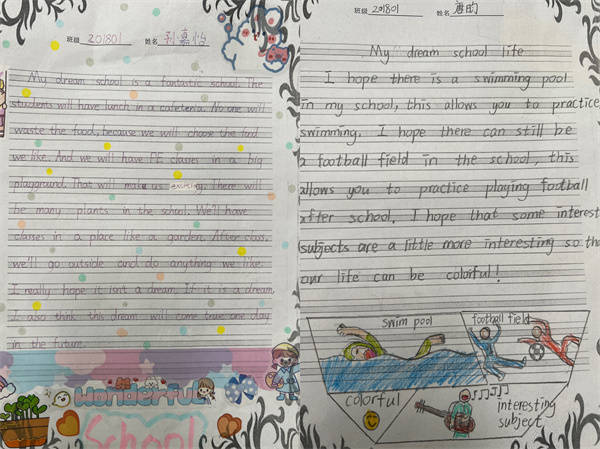 班级 201801 姓名 孙嘉怡
My dream school is a fantastic school. The
students will have lunch in a cafeteria. No one will
waste the food, because we will choose the food
we like. And we will have PE classes in a big
playground. That will make us exciting. There will
be many plants in the school. We'll have
classes in a place like a garden. After class,
we'll go outside and do anything we like.
I really hope it isn't a dream. If it is a dream,
I also think this dream will come true one day
in the future.
Wonderful
School
班级 201801 姓名
My dream school life
I hope there is a swimming pool
in my school, this allows you to practice
swimming. I hope there can still be
a football field in the school, this
allows you to practice playing football
after school. I hope that some interest
subjects are a little more interesting so tha
our life can be colorful!
swim pool
football field
colorful
interesting
subject